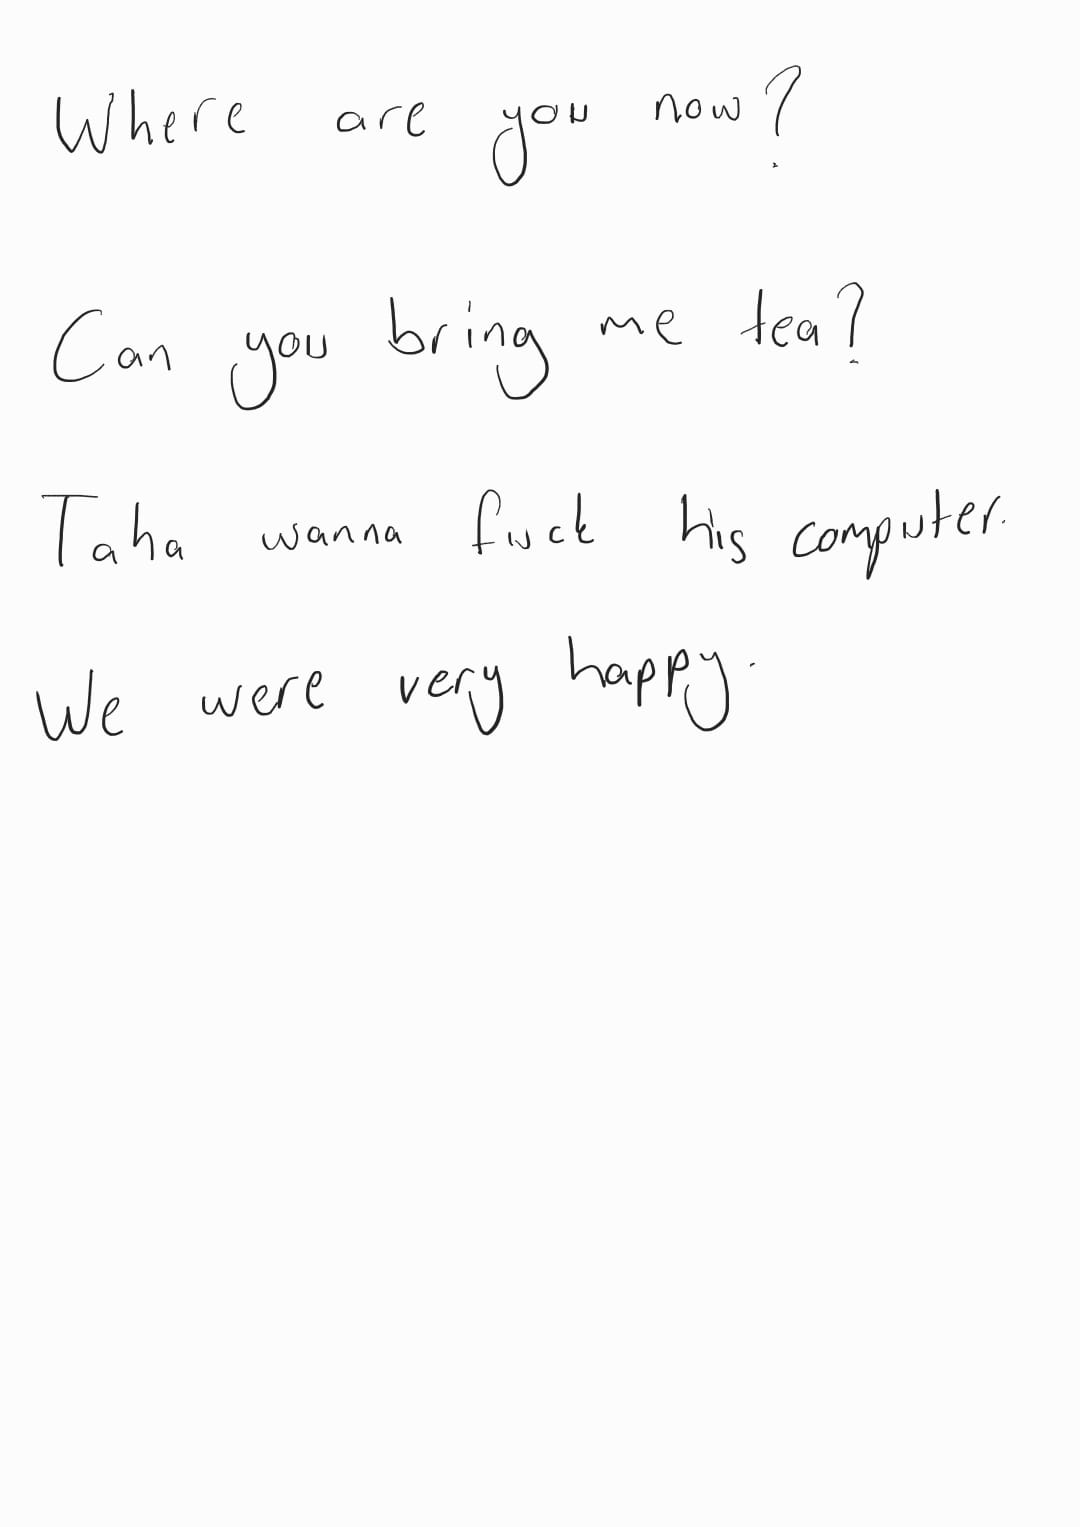 Where are you now?
Can you bring me tea?
Taha wanna fuck his computer.
We were very happy.